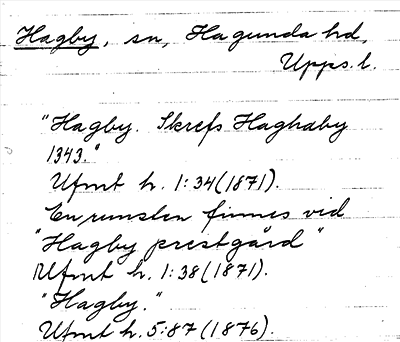 Hagby, sn, Hagunda hd,
Upps. l.
"Hagby. Skrefs Haghaby
1343."
Ufmt h. 1:34 (1871).
En runsten finnes vid
"Hagby prestgård"
Ufmt h. 1:38 (1871).
"Hagby."
Ufmt h. 5:87 (1876).